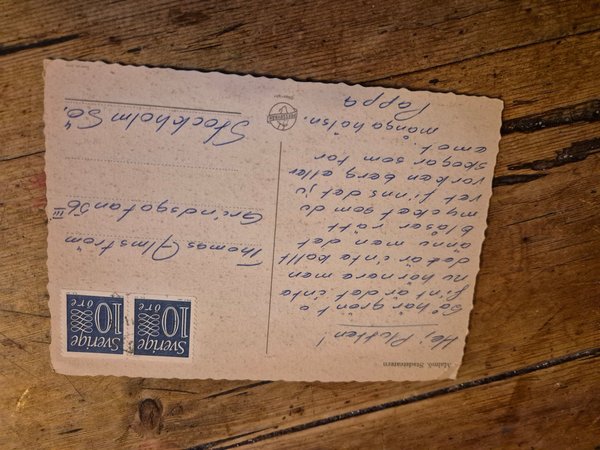 Malmö. Stadsteatern
Hej Plutten!
Så här grönt o
fint är det inte
nu härnere men
det är inte kallt
ännu men det
blåser rätt
mycket som du
vet finns det ju
varken berg eller
skogar som tar
emot.
många hälsn.
Pappa
Sverige
10
öre
Sverige
10
öre
Thomas Almström
Grindsgatan III
Stockholm Sö.